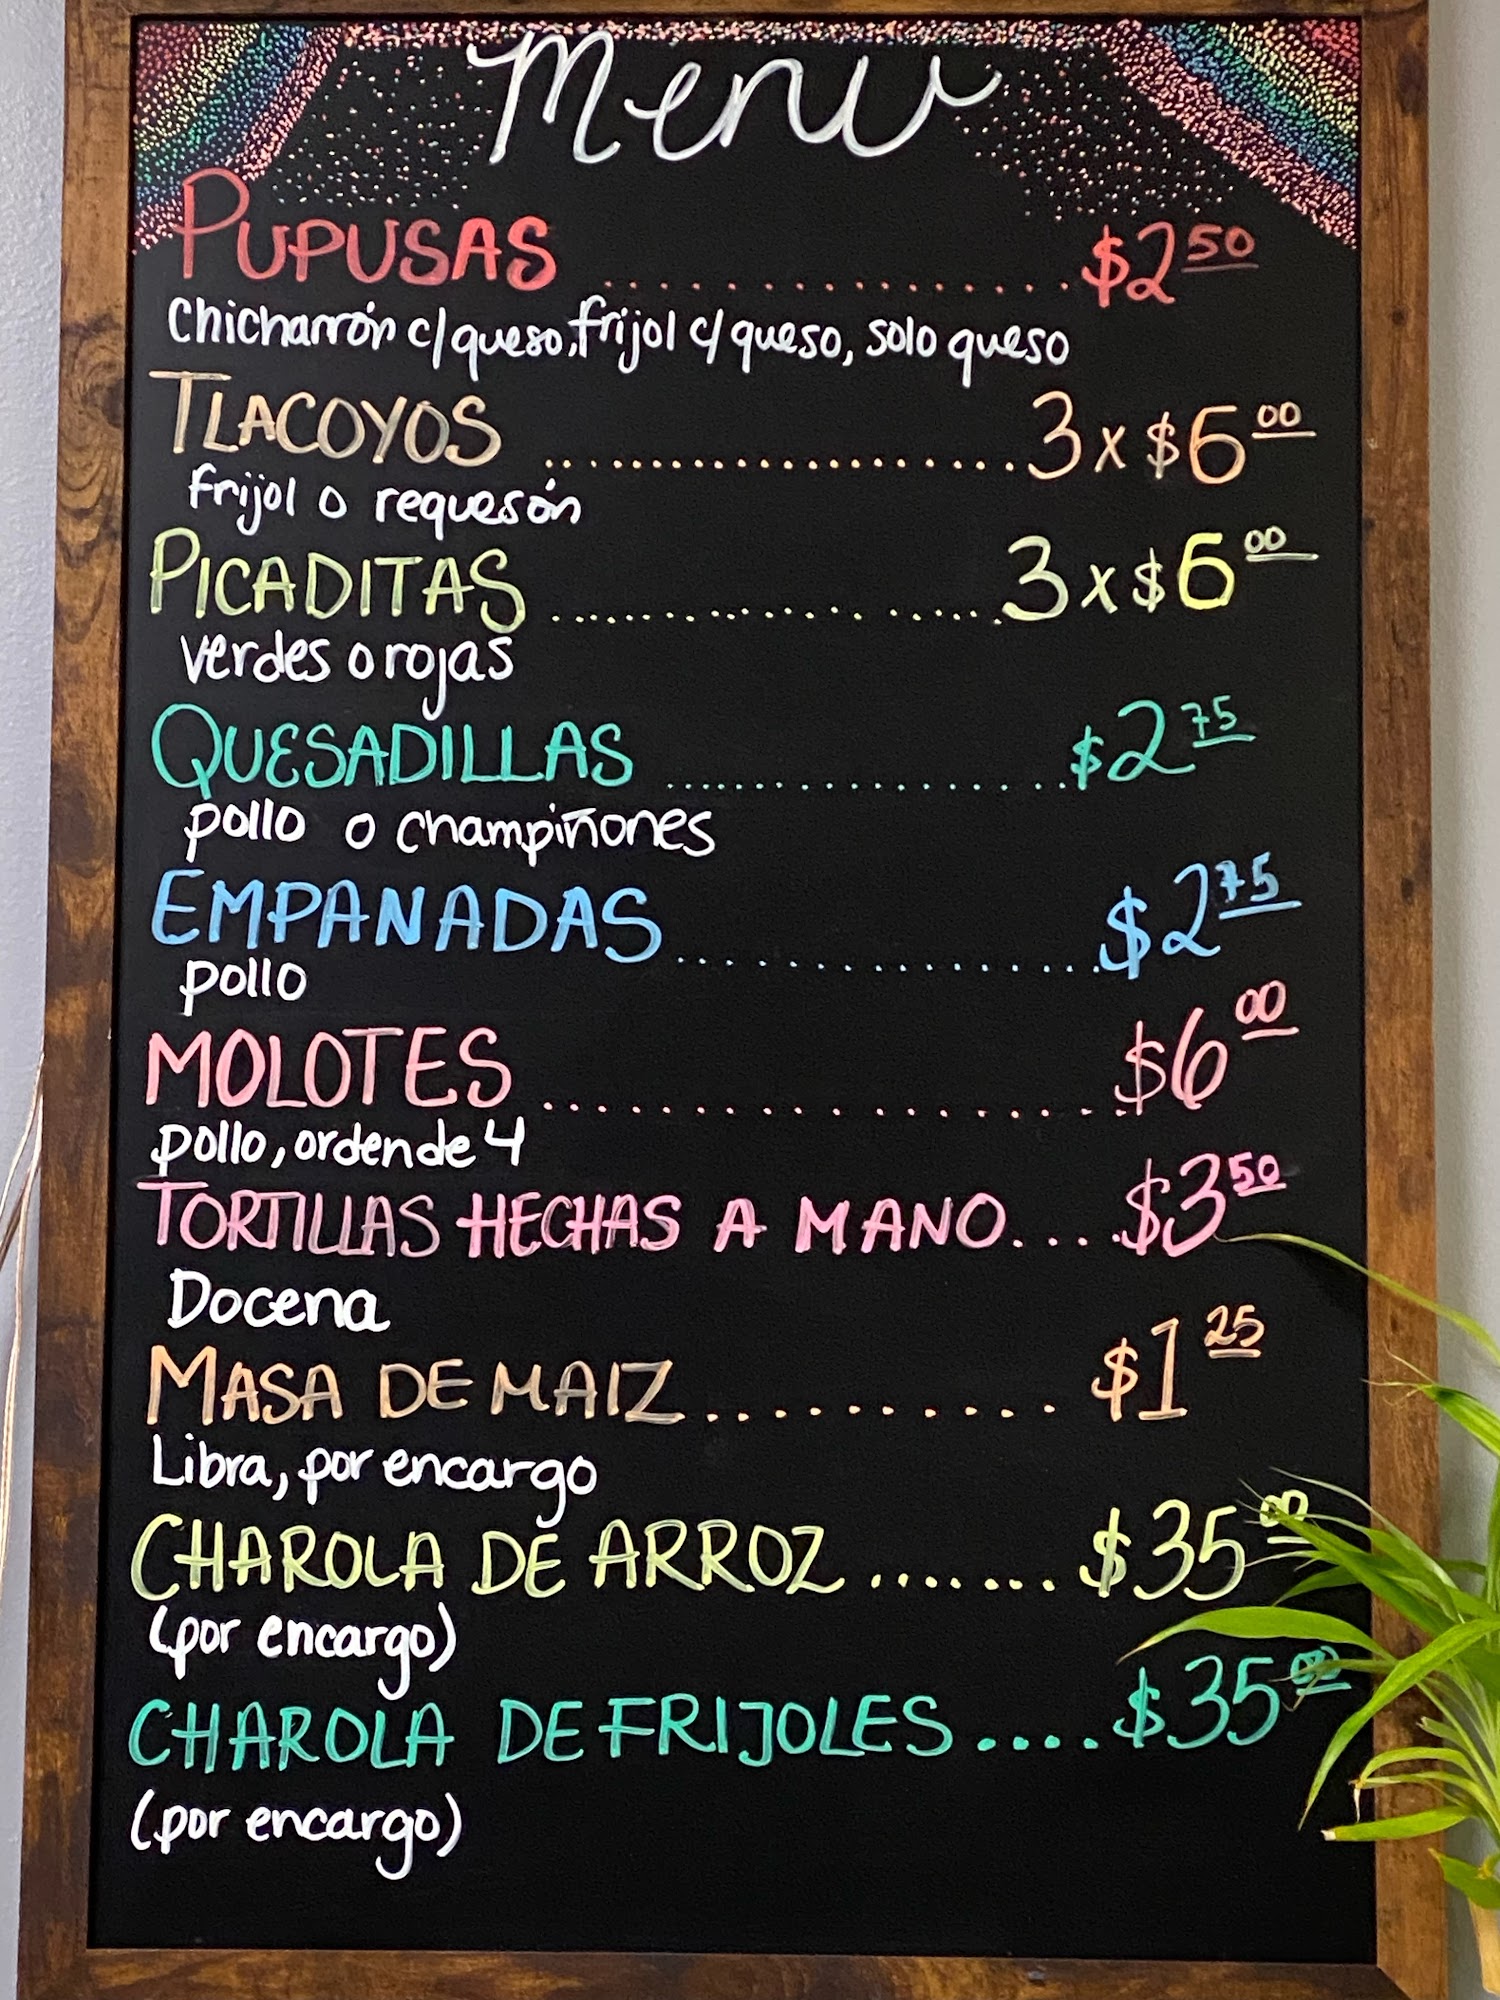 Menu
PUPUSAS .................. $2 50
Chicharrón c/queso, frijol c/queso, solo queso
TLACOYOS .................. 3 x $6 00
frijol o requesón
PICADITAS .................. 3 x $6 00
verdes o rojas
QUESADILLAS .................. $2 75
pollo o champiñones
EMPANADAS .................. $2 75
pollo
MOLOTES .................. $6 00
pollo, orden de 4
TORTILLAS HECHAS A MANO.... $3 50
Docena
MASA DE MAIZ........... $1 25
Libra, por encargo
CHAROLA DE ARROZ ....... $35 00
(por encargo)
CHAROLA DE FRIJOLES .... $35 00
(por encargo)